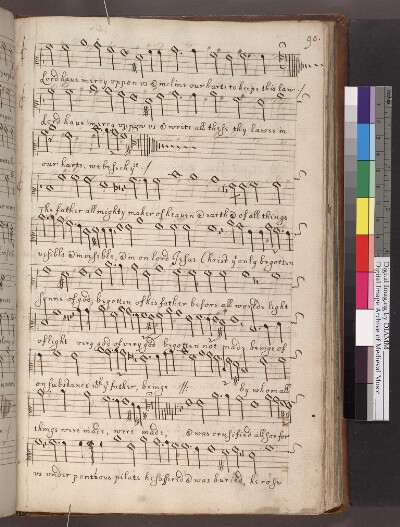 90.
Lord haue mercy vppon vs & incline our harts to keepe this law :/
Lord haue mercy vppon vs & write all these thy lawes in
our harts, we beseech yͤ :/
The father allmighty maker of heauen & earth & of all things
visible & invisible, & in on lord Jesus Christ yͤ only begotten
sonne of god, begotten of his father before all worldes light
of light very god of very god begotten not made, beinge of
on substance wth yͤ father, beinge :||: by whom all
things were made, were made, & was crusified allso for
vs vnder pontious pilate he suffered & was buried, he rose
Digital Imaging by DIAMM
Digital Image Archive of Medieval Music